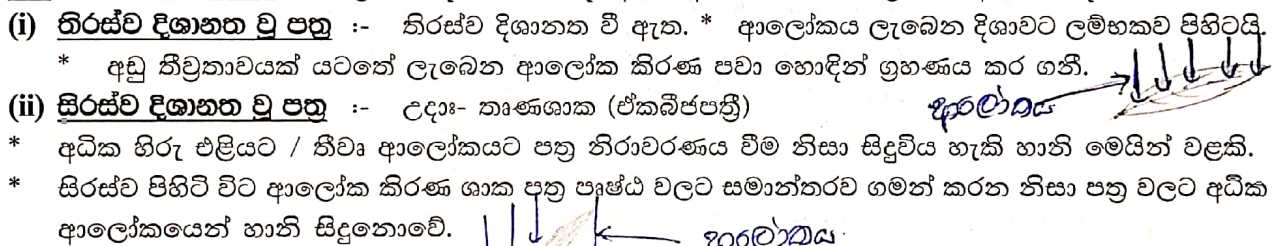 (i) තිරස්ව දිශානත වූ පත්‍ර :- තිරස්ව දිශානත වී ඇත. * ආලෝකය ලැබෙන දිශාවට ලම්භකව පිහිටයි.
* අඩු තීව්‍රතාවයක් යටතේ ලැබෙන ආලෝක කිරණ පවා හොඳින් ග්‍රහණය කර ගනී.
(ii) සිරස්ව දිශානත වූ පත්‍ර :- උදාඃ- තෘණශාක (ඒකබීජපත්‍රී)
ආලෝකය
* අධික හිරු එළියට / තීව්‍ර ආලෝකයට පත්‍ර නිරාවරණය වීම නිසා සිදුවිය හැකි හානි මෙයින් වළකී.
* සිරස්ව පිහිටි විට ආලෝක කිරණ ශාක පත්‍ර පෘෂ්ඨ වලට සමාන්තරව ගමන් කරන නිසා පත්‍ර වලට අධික
ආලෝකයෙන් හානි සිදුනොවේ.
ආලෝකය